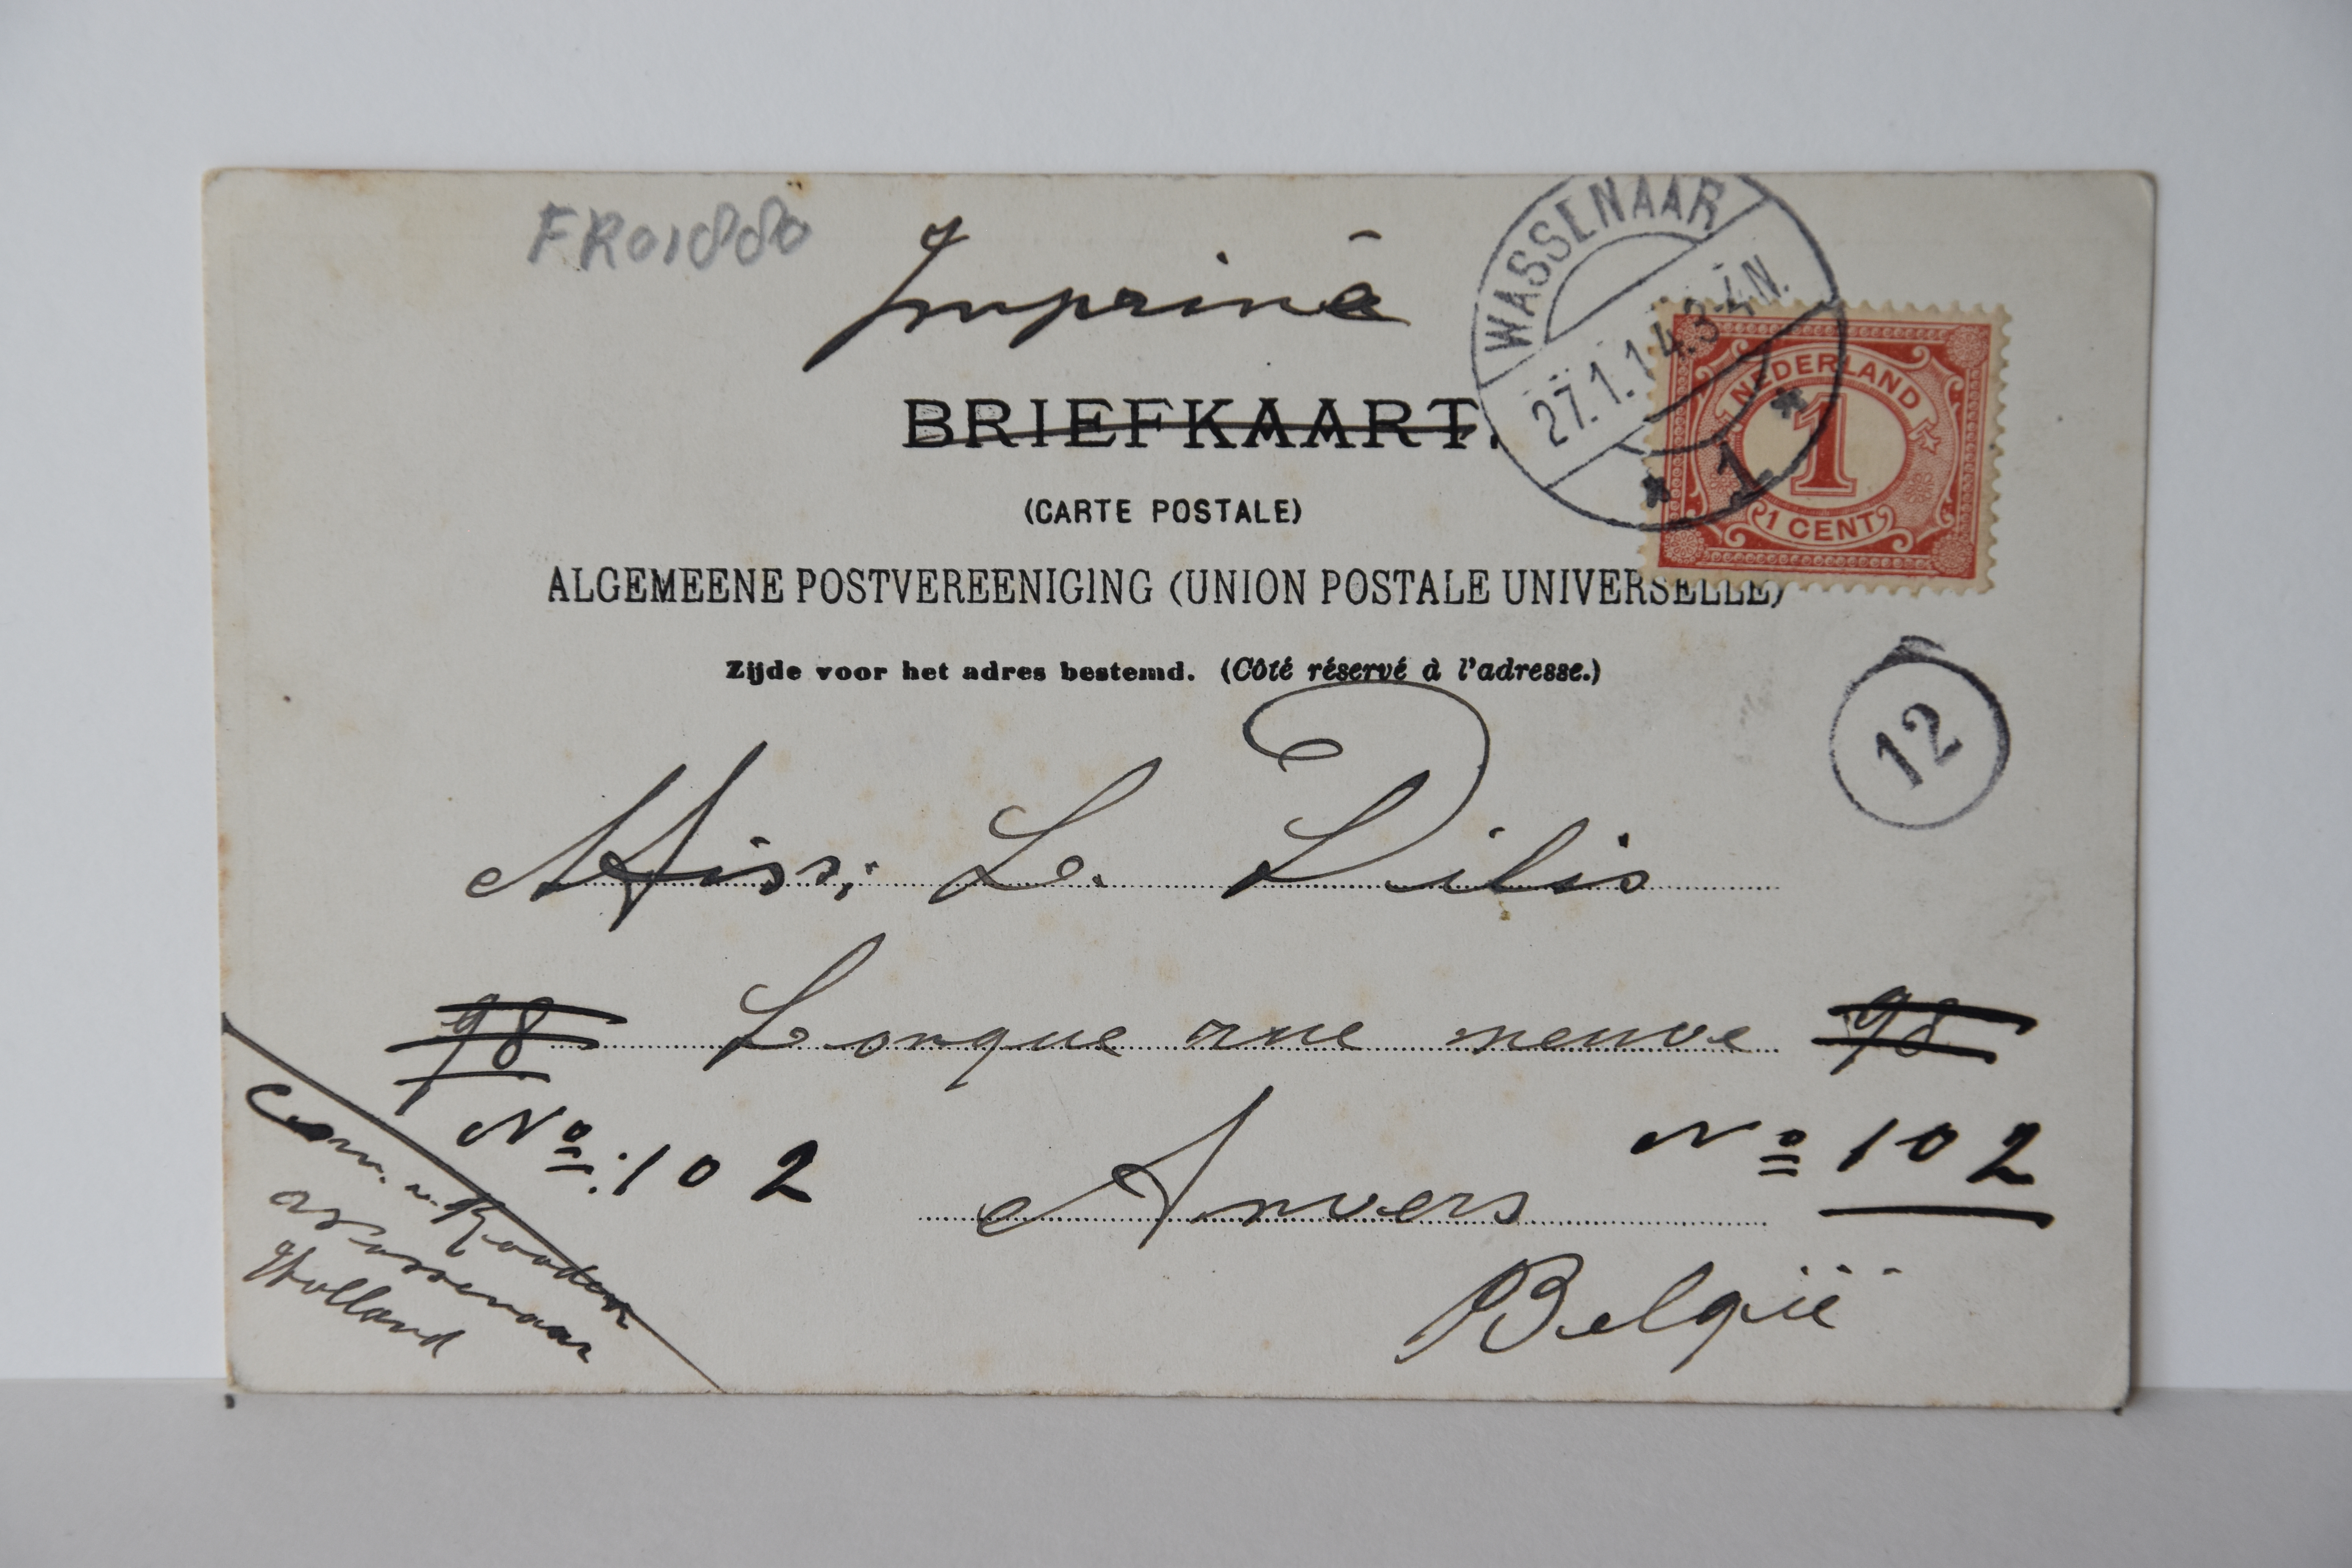 FR01880
Imprimé
WASSENAAR
27.1.14.3-4N.
1
NEDERLAND
1
1 CENT
BRIEFKAART.
(CARTE POSTALE)
ALGEMEENE POSTVEREENIGING (UNION POSTALE UNIVERSELLE)
Zijde voor het adres bestemd. (Côté réservé à l'adresse.)
12
Miss: L. Dilis
98 Longue rue neuve 98
No: 102 No 102
Anvers
België
Corn. v. Rooden
Wassenaar
Holland